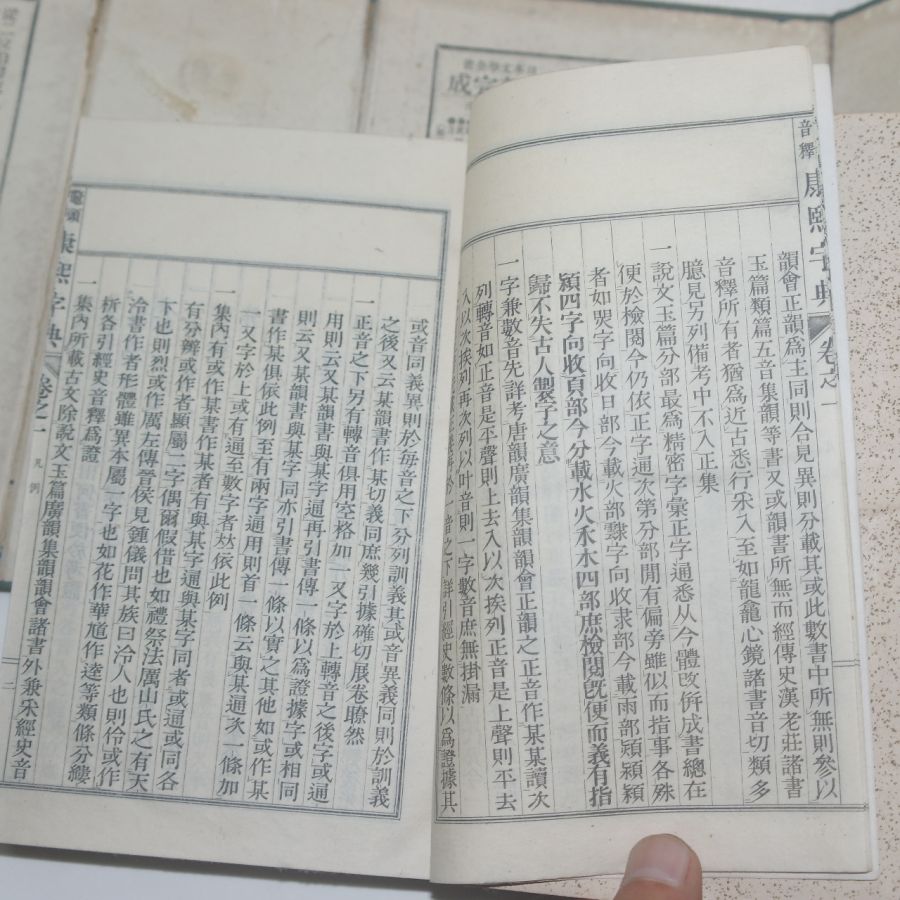 音釋 康熙字典 卷之一
韻會正韻為主同則合見異則分載其或此數書中所無則參以
玉篇類篇五音集韻等書又或韻書所無而經傳史漢老莊諸書
音釋所有者猶為近古悉行采入至如龍龕心鏡諸書音切類多
臆見另列備考中不入正集
一說文玉篇分部最為精密字彙正字通悉从今體改併成書總在
便於檢閱今仍依正字通次第分部閒有偏旁雖似而指事各殊
者如煛字向收日部今載火部隸字向收隶部今載雨部潁穎
熲四字向收頁部今分載水火禾木四部庶檢閱旣便而義有指
歸不失古人製字之意
一字兼數音先詳考唐韻廣韻集韻韻會正韻之正音作某某讀次
列轉音如正音是平聲則上去入以次挨列正音是上聲則平去
入以次挨列再次列以叶音則一字數音庶無掛漏
音之下詳引經史數條以為證據其
或音同義異則於每音之下分列訓義其或音異義同則於訓義
之後又云某韻書作某切義同庶幾引據確切展卷瞭然
一正音之下另有轉音俱用空格加一又字於上轉音之後字或通
用則云又某韻書與某字通再引書傳一條以為證據字或相同
則云又某韻書與某字同亦引書傳一條以實之其他如或作某
書作某俱依此例至有兩字通用則首一條云與某通次一條加
一又字於上或有通至數字者竝依此例
一集內有或作某書作某者有與某字通與某字同者或通或同各
有分辨或作者顯屬二字偶爾假借也如禮祭法厲山氏之有天
下也則烈或作厲左傳晉侯見鍾儀問其族曰泠人也則伶或作
泠書作者形體雖異本屬一字也如花作華馗作逵等類條分縷
析各引經史音釋為證
一集內所載古文除說文玉篇廣韻集韻韻會諸書外兼采經史音
鼇頭 康熙字典 卷之一 凡例 二